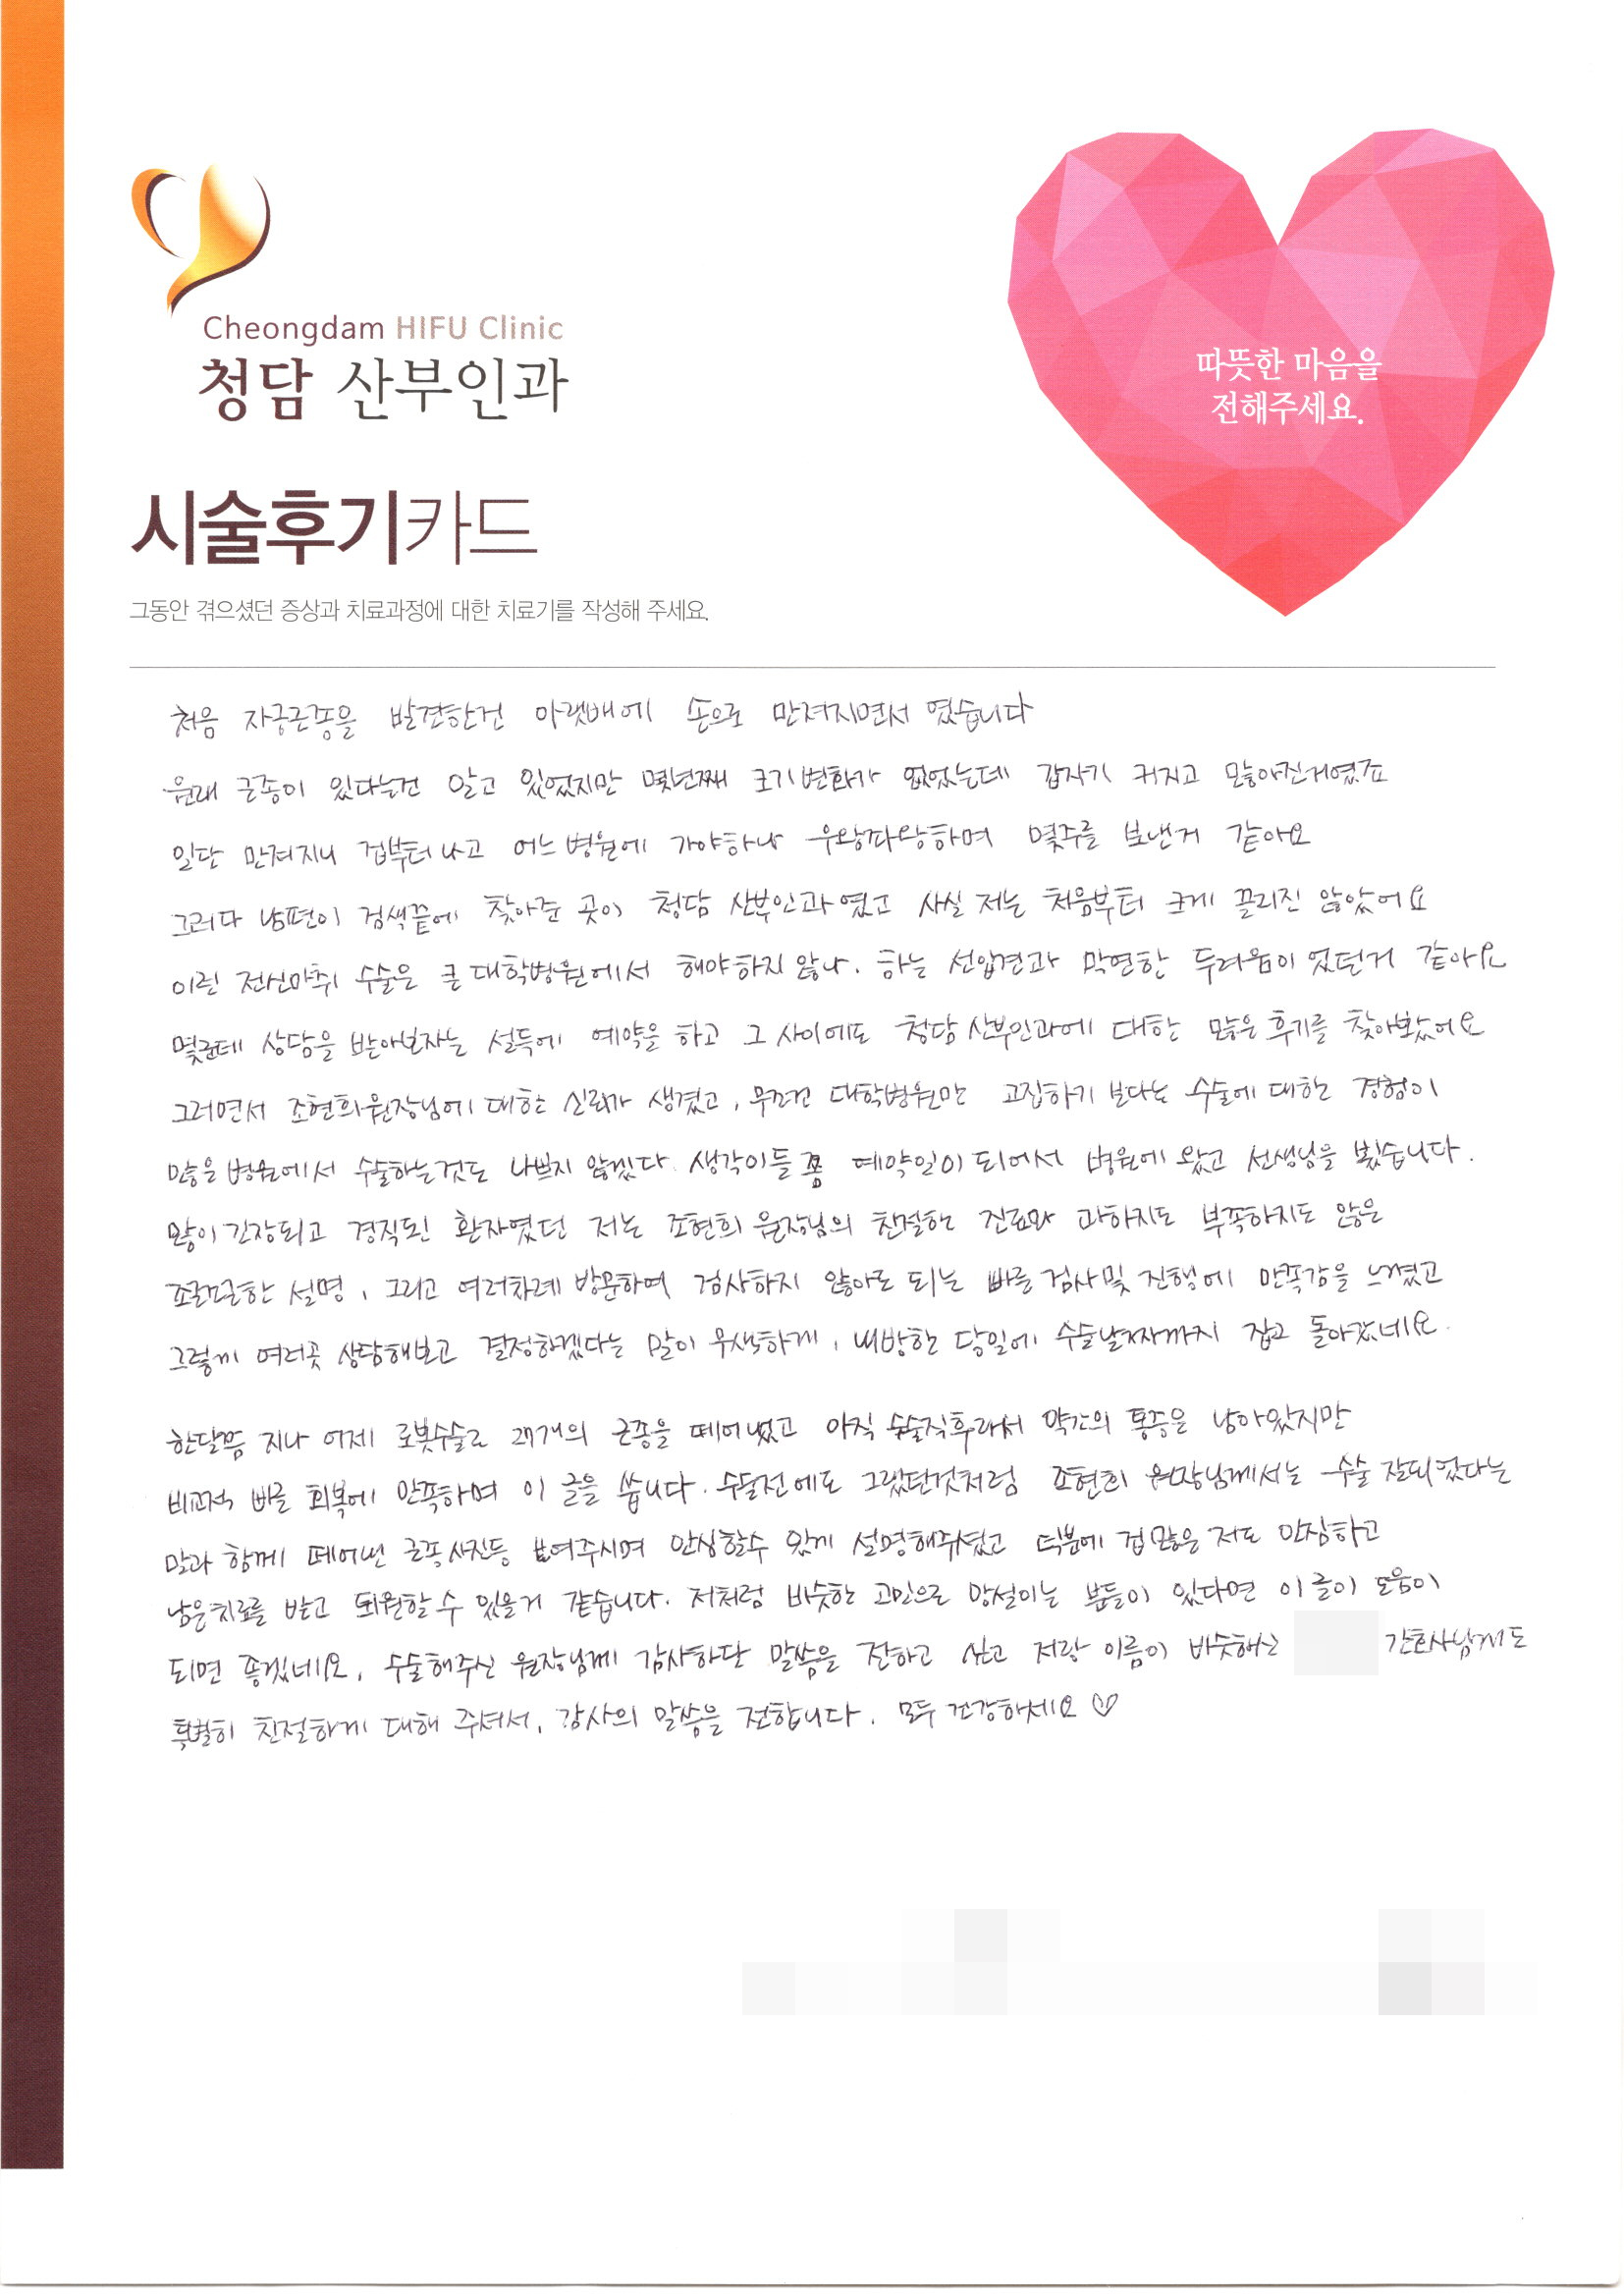 Cheongdam HIFU Clinic
청담 산부인과
따뜻한 마음을
전해주세요.
시술후기카드
그동안 겪으셨던 증상과 치료과정에 대한 치료기를 작성해 주세요.
처음 자궁근종을 발견한건 아랫배에 손으로 만져지면서 였습니다
원래 근종이 있다는건 알고 있었지만 몇년째 크기변화가 없었는데 갑자기 커지고 많아진거였죠
일단 만져지니 겁부터나고 어느병원에 가야하나 우왕좌왕하며 몇주를 보낸거 같아요
그러다 남편이 검색끝에 찾아준 곳이 청담 산부인과였고 사실 저는 처음부터 크게 끌리진 않았어요
이런 전신마취 수술은 큰 대학병원에서 해야하지 않나. 하는 선입견과 막연한 두려움이 있던거 같아요
몇군데 상담을 받아보자는 설득에 예약을 하고 그 사이에도 청담산부인과에 대한 많은 후기를 찾아봤어요
그러면서 조현희원장님에 대한 신뢰가 생겼고, 무조건 대학병원만 고집하기 보다는 수술에 대한 경험이
많은병원에서 수술하는것도 나쁘지 않겠다. 생각이들 쯤 예약일이 되어서 병원에 왔고 선생님을 뵀습니다.
많이 긴장되고 경직된 환자였던 저는 조현희 원장님의 친절한 진료와 과하지도 부족하지도 않은
조곤조곤한 설명, 그리고 여러차례 방문하여 검사하지 않아도 되는 빠른 검사및 진행에 만족감을 느꼈고
그렇게 여러곳 상담해보고 결정하겠다는 말이 무색하게, 내방한 당일에 수술날짜까지 잡고 돌아갔네요.
한달쯤 지나 어제 로봇수술로 27개의 근종을 떼어냈고 아직 수술직후라서 약간의 통증은 남아있지만
비교적 빠른 회복에 만족하며 이 글을 씁니다. 수술전에도 그랬던것처럼 조현희 원장님께서는 수술 잘되었다는
말과 함께 떼어낸 근종사진등 보여주시며 안심할수 있게 설명해주셨고 덕분에 겁많은 저도 안심하고
남은치료를 받고 퇴원할 수 있을거 같습니다. 저처럼 비슷한 고민으로 망설이는 분들이 있다면 이 글이 도움이
되면 좋겠네요, 수술해주신 원장님께 감사하단 말씀을 전하고 싶고 저랑 이름이 비슷하신 간호사님께도
특별히 친절하게 대해 주셔서, 감사의 말씀을 전합니다. 모두 건강하세요♡